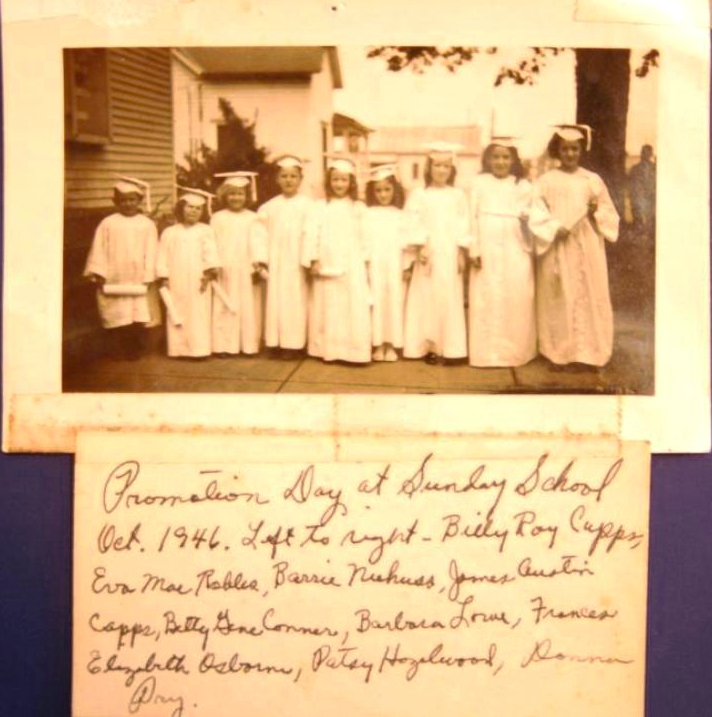 Promotion Day at Sunday School
Oct. 1946. Left to right - Billy Roy Capps,
Eva Mae Robles, Barrie Niehuss, James Austin
Capps, Betty Gene Conner, Barbara Lowe, Frances
Elizabeth Osborne, Patsy Hazelwood, Donna
Dry.